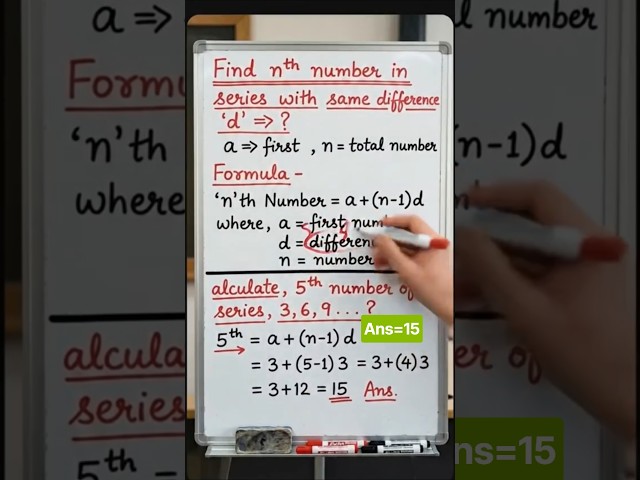 Find nth number in
series with same difference
'd' => ?
a => first , n = total number
Formula -
'n'th Number = a + (n-1)d
where, a = first num
d = differen
n = number
alculate, 5th number of
series, 3, 6, 9 . . . . ?
5th = a + (n-1) d
Ans=15
= 3 + (5-1) 3 = 3 + (4) 3
= 3 + 12 = 15 Ans.